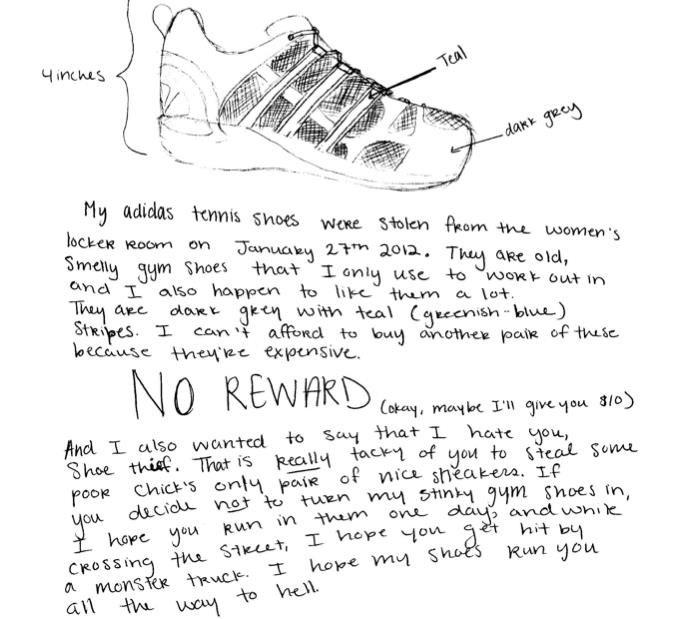 4 inches
Teal
dark grey
My adidas tennis shoes were stolen from the women's
locker room on January 27th 2012. They are old,
Smelly gym shoes that I only use to work out in
and I also happen to like them a lot.
They are dark grey with teal (greenish-blue)
Stripes. I can't afford to buy another pair of these
because they're expensive.
NO REWARD (okay, maybe I'll give you $10)
And I also wanted to say that I hate you,
Shoe thief. That is really tacky of you to steal some
poor chick's only pair of nice sneakers. If
you decide not to turn my stinky gym shoes in,
I hope you run in them one day, and while
crossing the street, I hope you get hit by
a monster truck. I hope my shoes run you
all the way to hell.